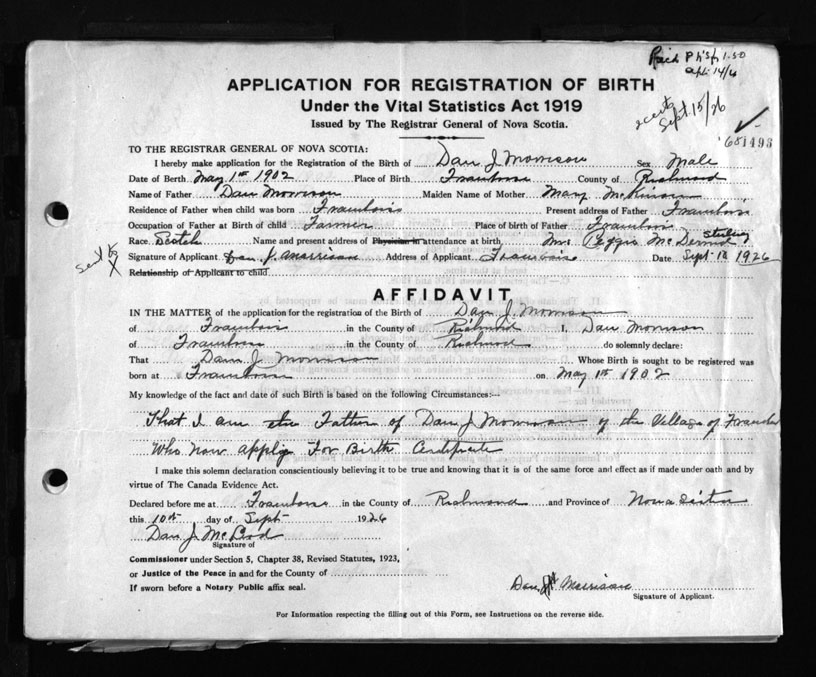 Paid 1.50
Apl 14/6
APPLICATION FOR REGISTRATION OF BIRTH
Under the Vital Statistics Act 1919
Issued by The Registrar General of Nova Scotia.
Sept 15/26
TO THE REGISTRAR GENERAL OF NOVA SCOTIA:
I hereby make application for the Registration of the Birth of Dan J. Morrison Sex Male
Date of Birth May 1st 1902 Place of Birth Framboise County of Richmond
Name of Father Dan Morrison Maiden Name of Mother Mary McKinnon
Residence of Father when child was born Frambois Present address of Father Frambois
Occupation of Father at Birth of child Farmer Place of birth of Father Frambois
Race Scotch Name and present address of Physician in attendance at birth, Mrs Peggie McDermid Sterling
Signature of Applicant Dan J. Morrison Address of Applicant Framboise Date Sept 10 1926
Relationship of Applicant to child
AFFIDAVIT
IN THE MATTER of the application for the registration of the Birth of Dan J. Morrison
of Frambois in the County of Richmond I, Dan Morrison
of Framboise in the County of Richmond do solemnly declare:
That Dan J Morrison Whose Birth is sought to be registered was
born at Framboise on May 1st 1902
My knowledge of the fact and date of such Birth is based on the following Circumstances:—
That I am the Father of Dan J Morrison of the Village of
Who now apply For Birth Certificate
I make this solemn declaration conscientiously believing it to be true and knowing that it is of the same force and effect as if made under oath and by
virtue of The Canada Evidence Act.
Declared before me at Framboise in the County of Richmond and Province of Nova Scotia
this 10th day of Sept 1926
Dan J. McLeod
Signature of
Commissioner under Section 5, Chapter 38, Revised Statutes, 1923,
or Justice of the Peace in and for the County of
If sworn before a Notary Public affix seal.
Dan Morrison
Signature of Applicant.
For Information respecting the filling out of this Form, see Instructions on the reverse side.